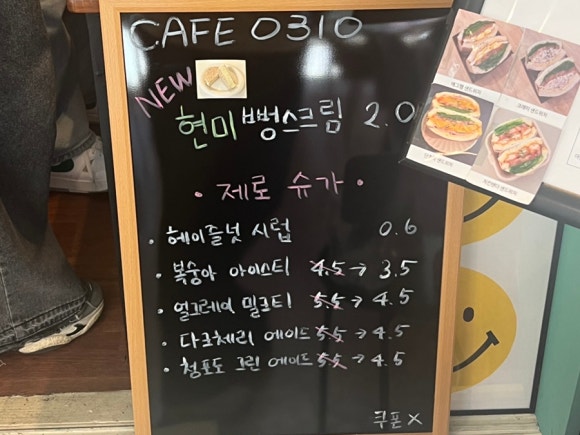 CAFE 0310
NEW
현미뻥스크림 2.0
• 제로 슈가 •
• 헤이즐넛 시럽 0.6
• 복숭아 아이스티 4.5 → 3.5
• 얼그레이 밀크티 5.5 → 4.5
• 다크체리 에이드 5.5 → 4.5
• 청포도 그린 에이드 5.5 → 4.5
쿠폰 X